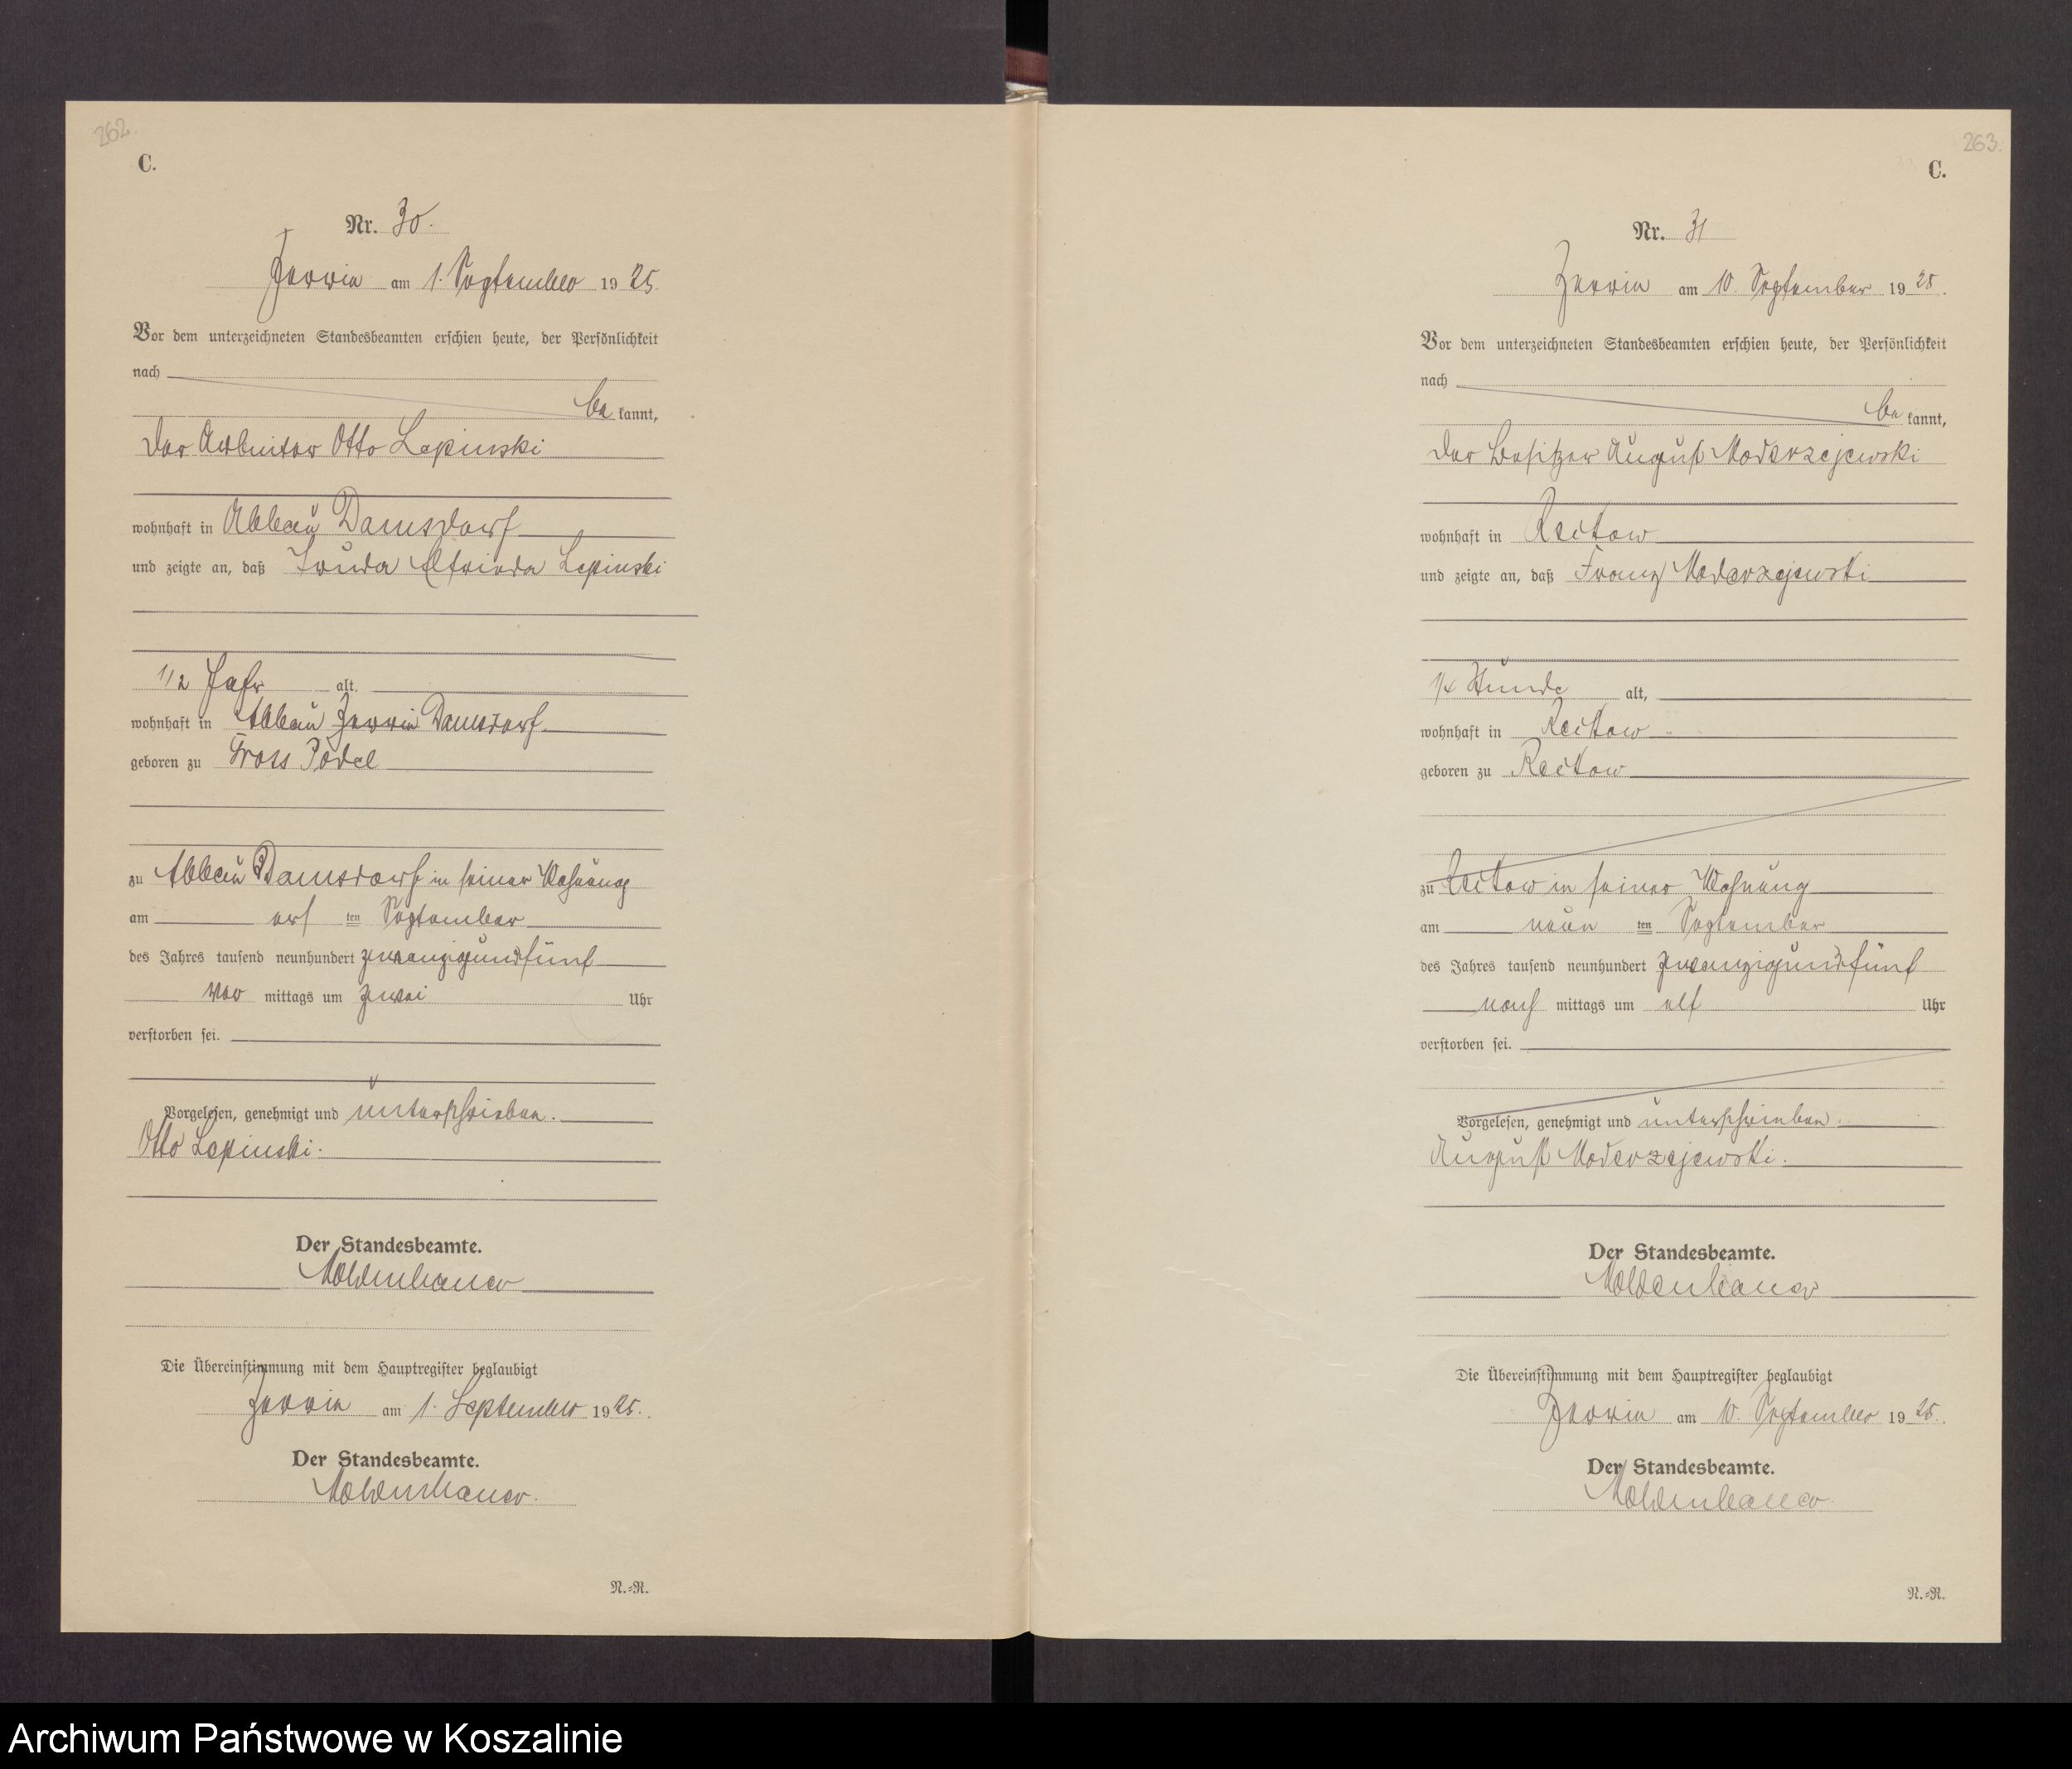 262.
C.
Nr. 30.
Zerrin am 1. September 1925.
Vor dem unterzeichneten Standesbeamten erschien heute, der Persönlichkeit
nach
be kannt,
der Arbeiter Otto Lepinski
wohnhaft in Abbau Damsdorf
und zeigte an, daß Elfrieda Lepinski
1/2 Jahr alt.
wohnhaft in Abbau Zerrin Damsdorf
geboren zu Gross Pödel
zu Abbau Damsdorf in seiner Wohnung
am ersten September
des Jahres tausend neunhundert zwanzigundfünf
vor mittags um zwei Uhr
verstorben sei.
Vorgelesen, genehmigt und unterschrieben.
Otto Lepinski.
Der Standesbeamte.
Moldenhauer
Die Übereinstimmung mit dem Hauptregister beglaubigt
Zerrin am 1. September 1925.
Der Standesbeamte.
Moldenhauer.
N.=R.
263.
C.
Nr. 31
Zerrin am 10. September 1925.
Vor dem unterzeichneten Standesbeamten erschien heute, der Persönlichkeit
nach
be kannt,
der Besitzer August Moderzejewski
wohnhaft in Reckow
und zeigte an, daß Franz Moderzejewski
1/4 Stunde alt,
wohnhaft in Reckow
geboren zu Reckow
zu Reckow in seiner Wohnung
am neunten September
des Jahres tausend neunhundert zwanzigundfünf
nach mittags um elf Uhr
verstorben sei.
Vorgelesen, genehmigt und unterschrieben.
August Moderzejewski.
Der Standesbeamte.
Moldenhauer
Die Übereinstimmung mit dem Hauptregister beglaubigt
Zerrin am 10. September 1925.
Der Standesbeamte.
Moldenhauer
N.=R.
Archiwum Państwowe w Koszalinie